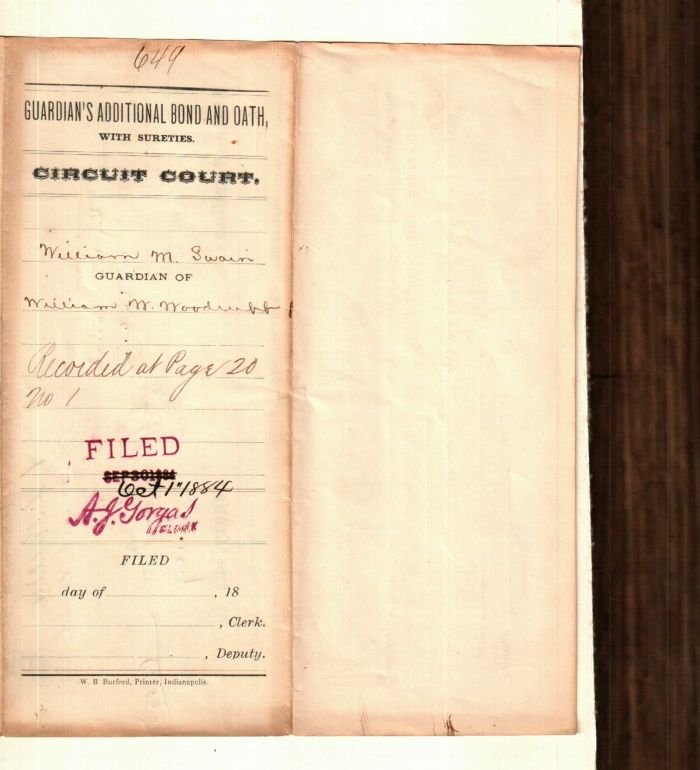 649
GUARDIAN'S ADDITIONAL BOND AND OATH,
WITH SURETIES.
CIRCUIT COURT.
William M. Swain
GUARDIAN OF
William W. Woodruff
Recorded at Page 20
No 1
FILED
SEP 30 1884
Oct 1" 1884
A. J. Gorgas
CLERK
FILED
day of , 18
, Clerk.
, Deputy.
W. B Burford, Printer, Indianapolis.